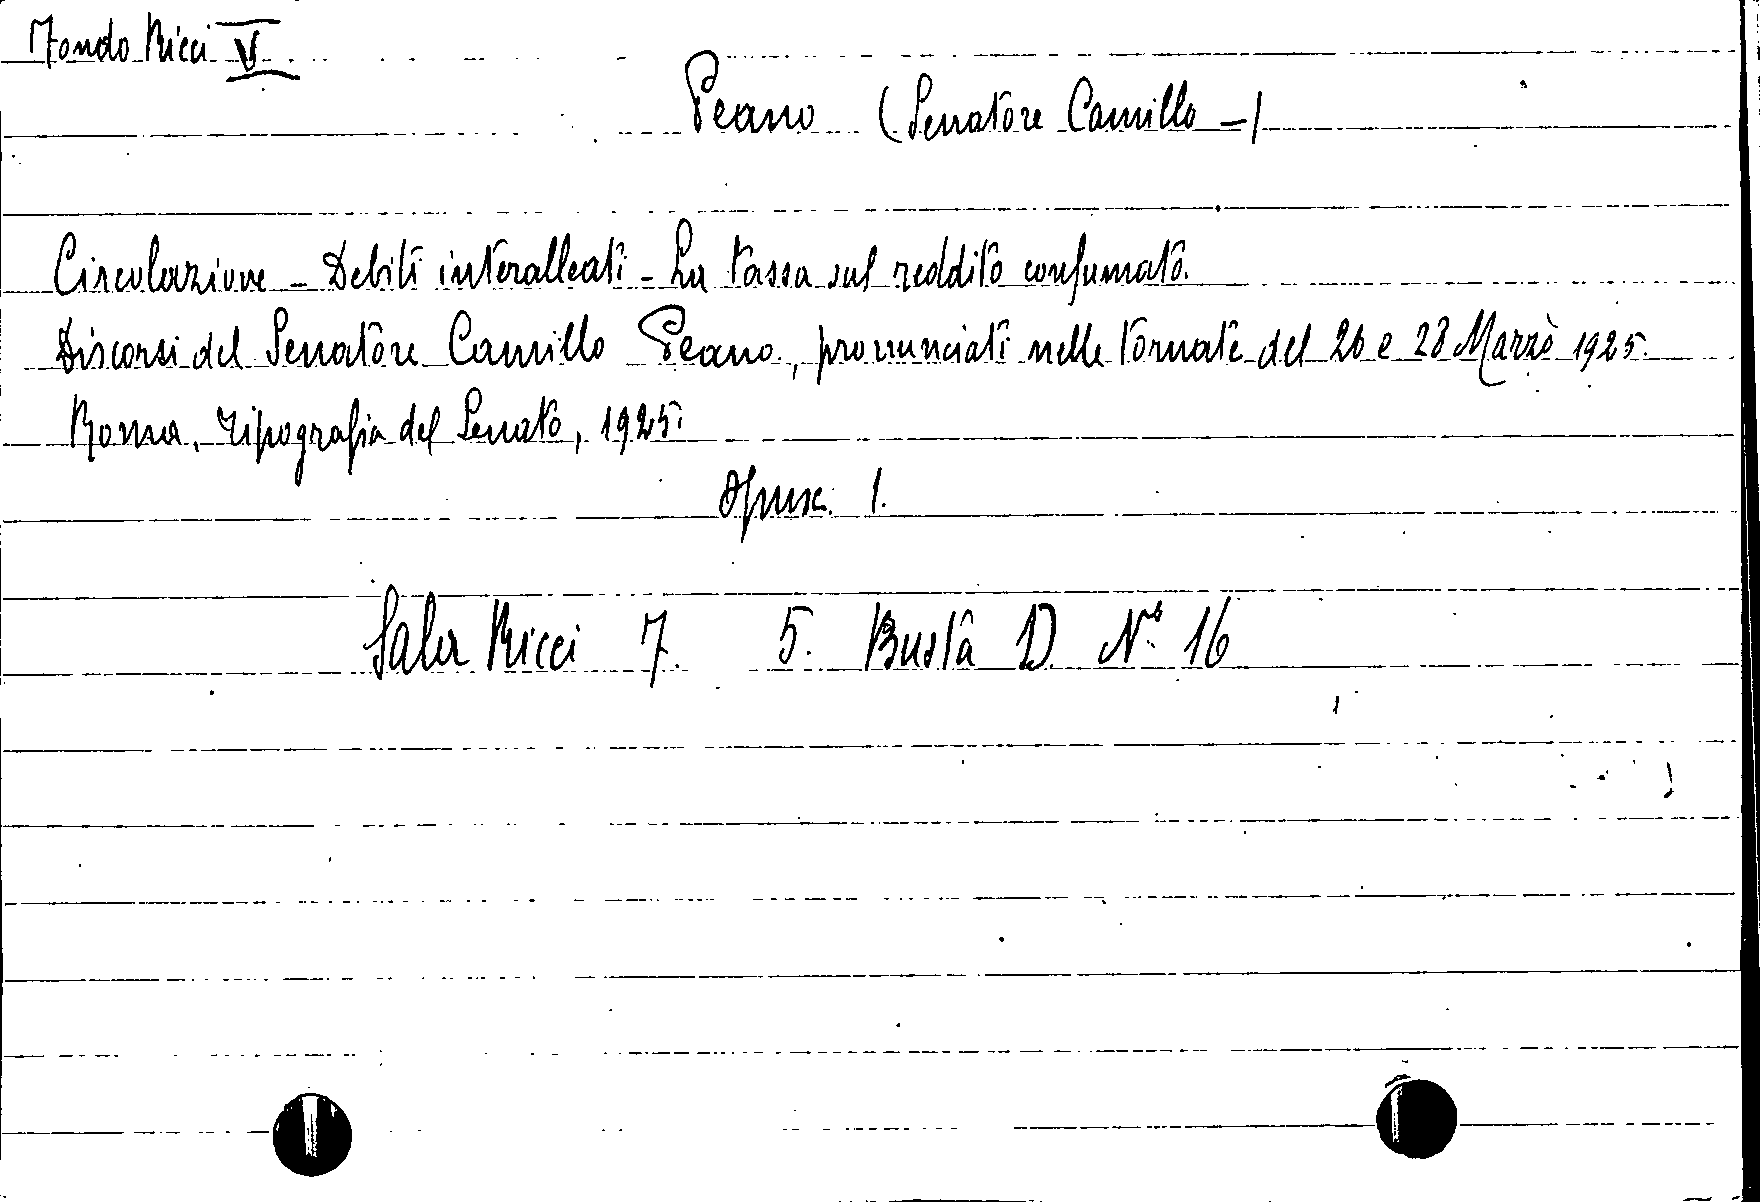 Fondo Ricci V
Peano (Senatore Camillo -)
Circolazione - Debiti interalleati - La tassa sul reddito consumato.
Discorsi del Senatore Camillo Peano, pronunciati nelle tornate del 26 e 28 Marzo 1925.
Roma, Tipografia del Senato, 1925.
Opusc. 1.
Sala Ricci 7. 5. Busta D. N.° 16